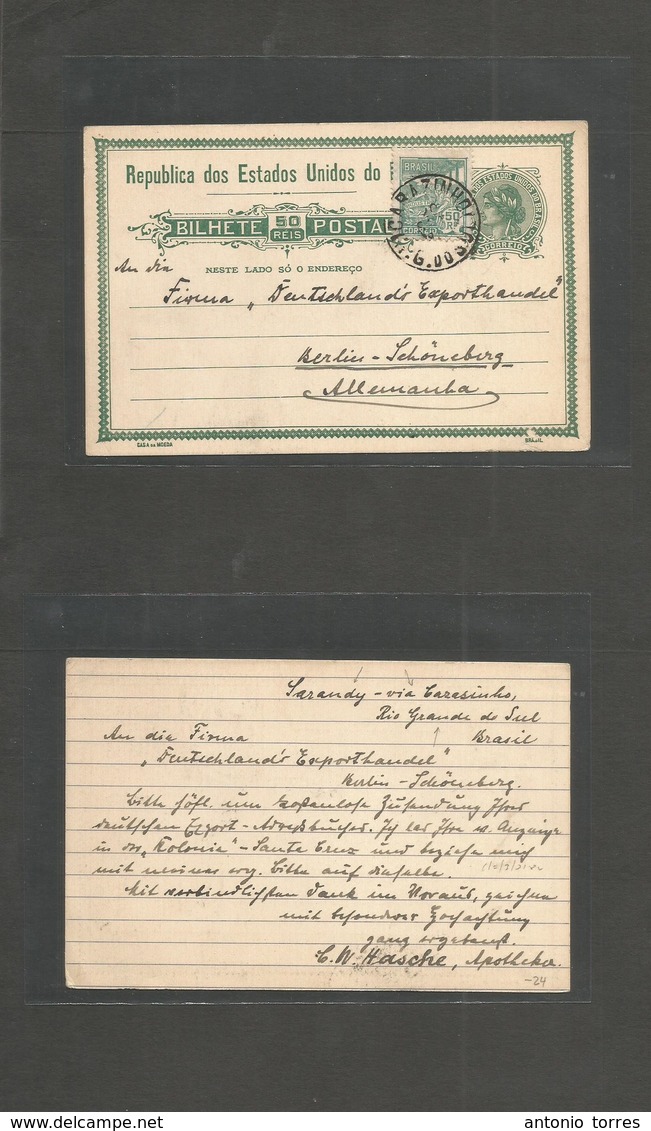 Republica dos Estados Unidos do
BRASIL
BILHETE 50 REIS POSTAL
CORREIO
50
An die
NESTE LADO SÓ O ENDEREÇO
Firma „Deutschland's Exporthandel"
Berlin-Schöneberg
Allemanha
CASA DA MOEDA
BRASIL
Sarandy - via Carasinho,
Rio Grande do Sul
Brasil
An die Firma
„Deutschland's Exporthandel"
Berlin-Schöneberg.
Bitte höfl. um kostenlose Zusendung Ihres
deutschen Export-Adressbuches. Ich las Ihre w. Anzeige
in der „Kolonie" - Santa Cruz und beziehe mich
mit meiner erg. Bitte auf dieselbe.
Mit verbindlichsten Dank im Voraus, zeichne
mit besonderer Hochachtung
ganz ergebenst.
C. W. Hasche, Apotheker
-24
antonio torres